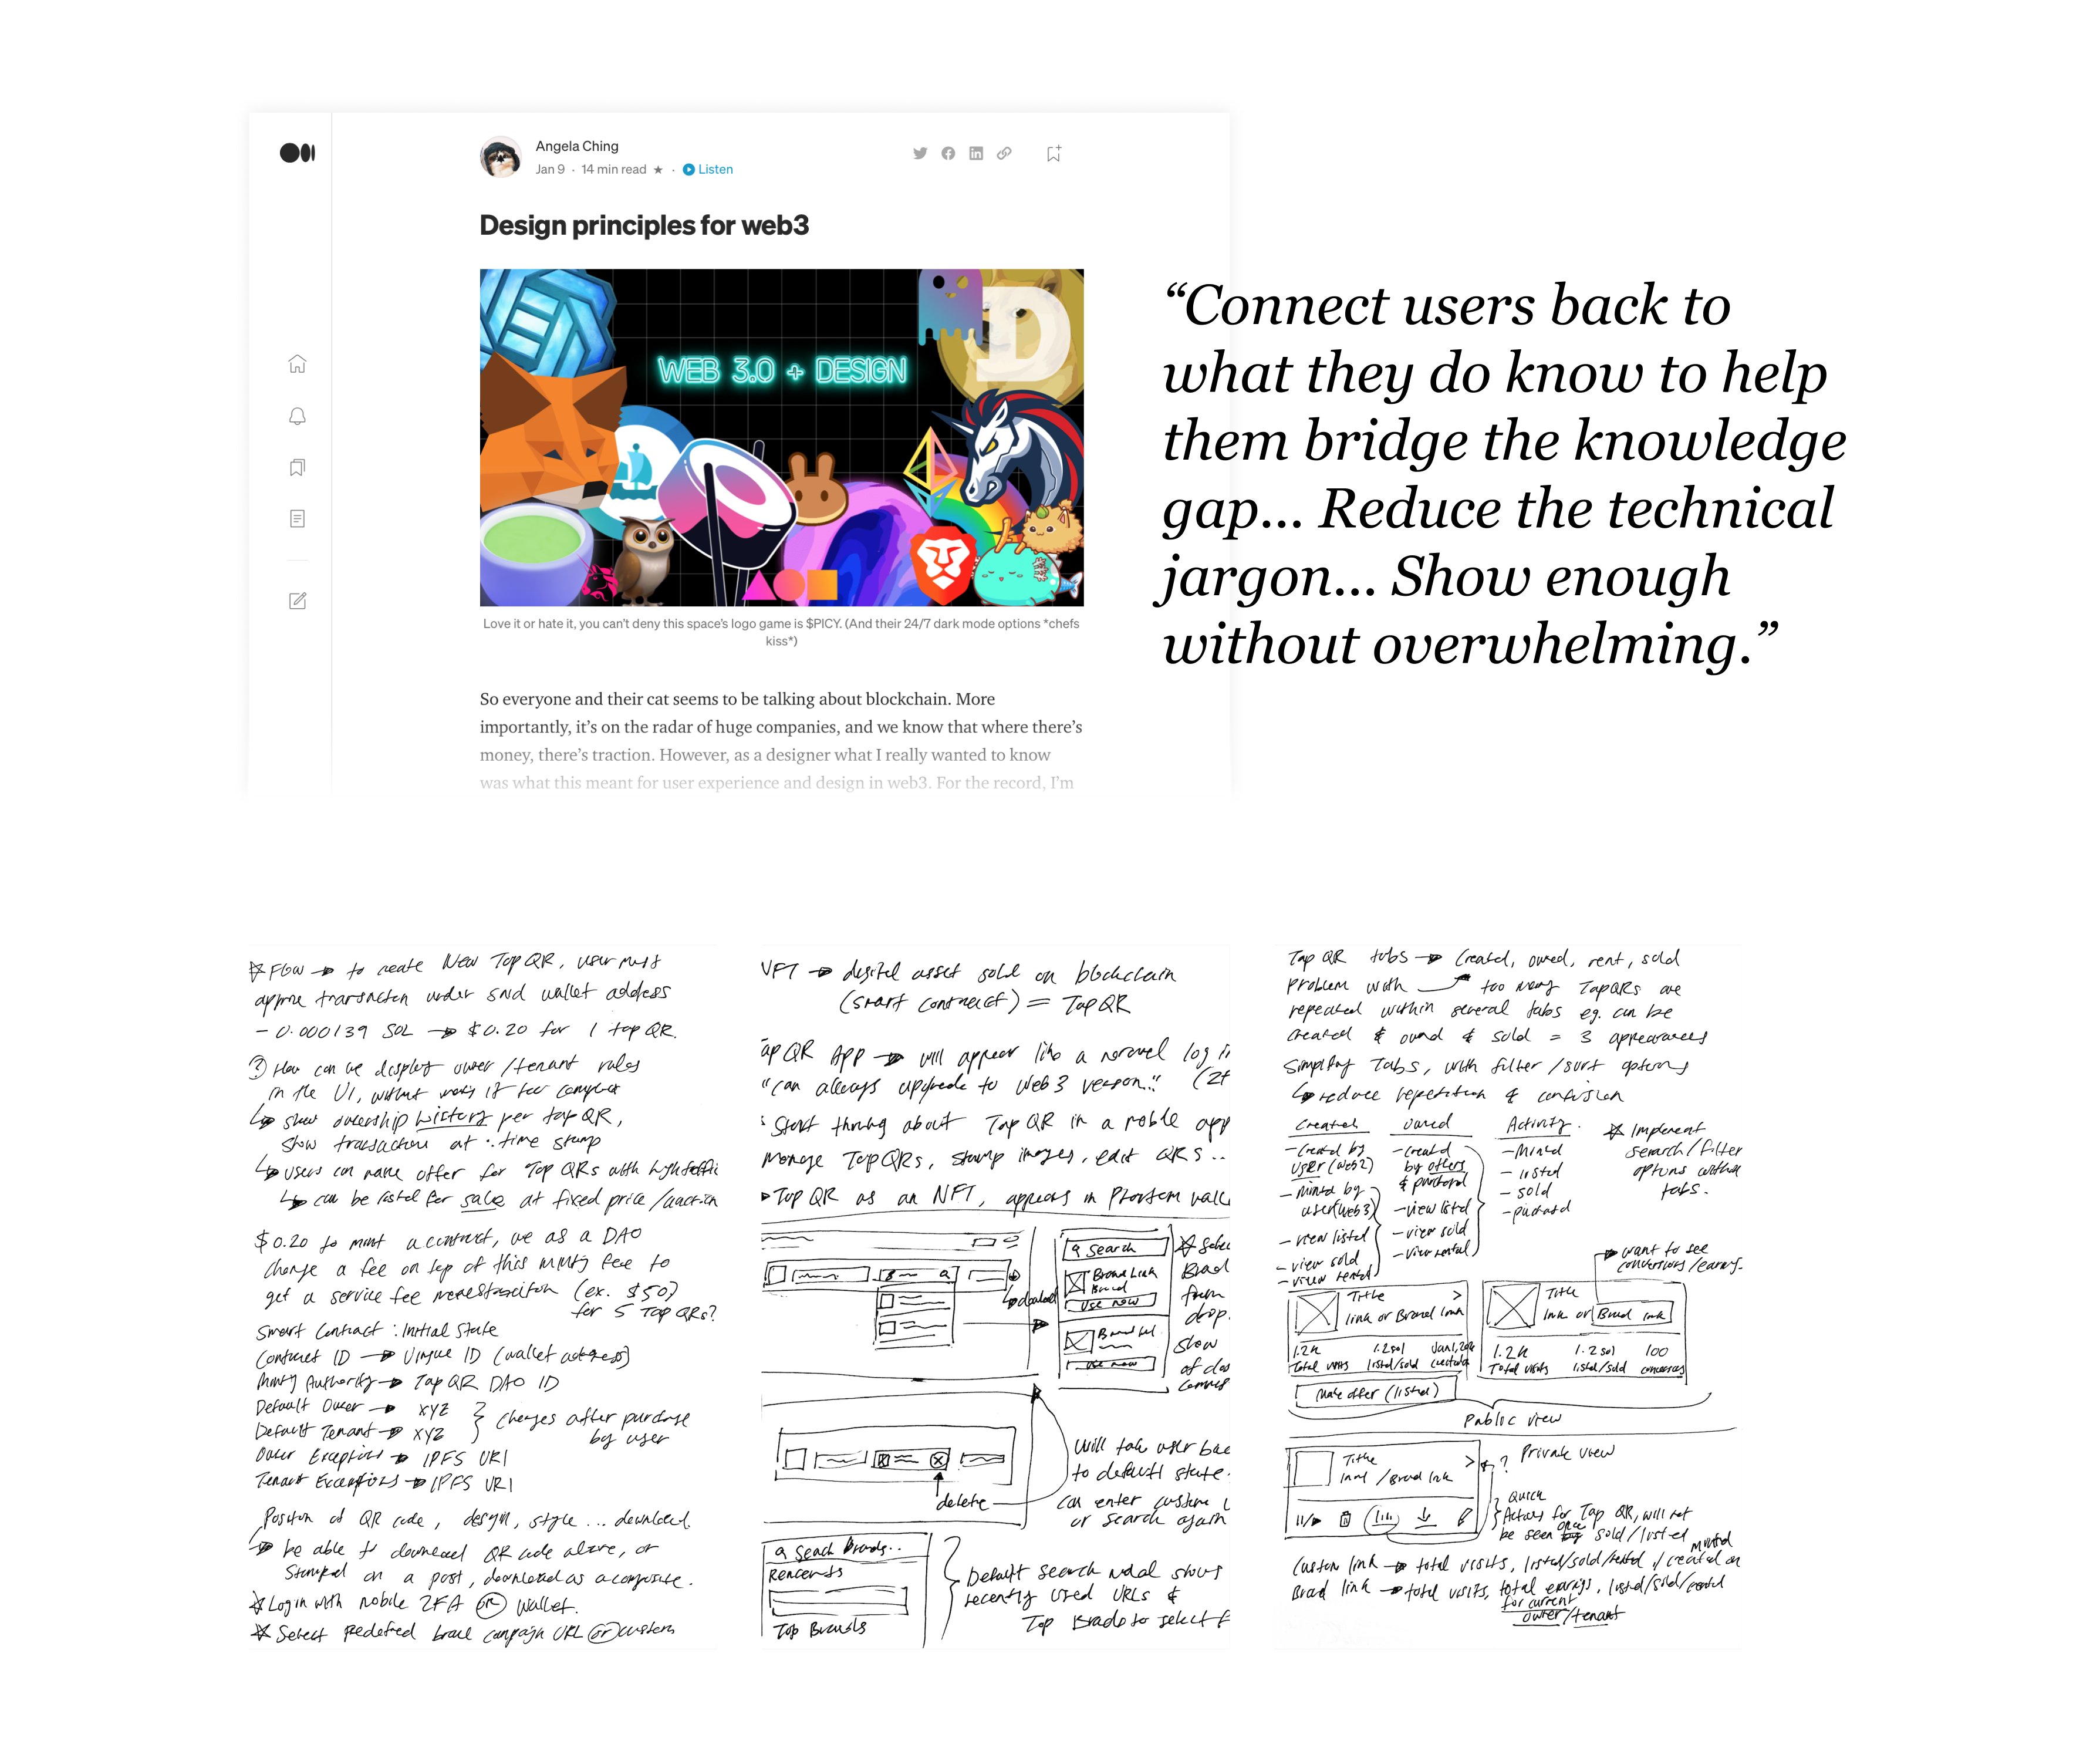 Angela Ching
Jan 9 · 14 min read ★ · Listen
Design principles for web3
WEB 3.0 + DESIGN
Love it or hate it, you can't deny this space's logo game is $PICY. (And their 24/7 dark mode options *chefs
kiss*)
So everyone and their cat seems to be talking about blockchain. More
importantly, it's on the radar of huge companies, and we know that where there's
money, there's traction. However, as a designer what I really wanted to know
was what this meant for user experience and design in web3. For the record, I'm
“Connect users back to
what they do know to help
them bridge the knowledge
gap... Reduce the technical
jargon... Show enough
without overwhelming.”
Flow → to create New Tap QR, user must
approve transaction under wallet address
- 0.000139 SOL → $0.20 for 1 tap QR.
? How can we display owner/tenant rules
in the UI, without making it too complex
↳ show ownership history per tap QR,
show transaction at time stamp
↳ users can make offer for Tap QRs with high traffic
↳ can be listed for sale at fixed price/auction
$0.20 to mint a contract, we as a DAO
charge a fee on top of this minting fee to
get a service fee (ex. $50)
for 5 Tap QRs?
Smart Contract : Initial State
Contract ID → Unique ID (wallet address)
Minty Authority → Tap QR DAO ID
Default Owner → XYZ
Default Tenant → XYZ
} Changes after purchase
by user
Owner Exceptions → IPFS URI
Tenant Exceptions → IPFS URI
Position of QR code, design, style ... download
→ be able to download QR code alone, or
Stamped on a post, download as a composite.
Login with mobile 2FA or wallet.
Select Predefined brand campaign URL or custom
NFT → digital asset sold on blockchain
(smart contract) = Tap QR
Tap QR App → will appear like a normal log in
"can always upgrade to Web3 version" (2F
Start thinking about Tap QR in a mobile app
Manage Tap QRs, stamp images, edit QRs..
Tap QR as an NFT, appears in Phantom wall
Search
Brand Link
Brand
Use now
Use now
Brand
from
drop
show
delete
will take user bac
to default state.
can enter custom
or search again
Search Brands..
Recents
Top Brands
Default search modal shows
recently used URLs &
Top Brands to select f
Tap QR tabs → Created, owned, rent, sold
Problem with → too many Tap QRs are
repeated within several tabs eg. can be
created & owned & sold = 3 appearances
Simplify Tabs, with filter/sort options
↳ reduce repetition & confusion
Created
- Created by
user (web2)
- minted by
user (web3)
- view listed
- view sold
- view rented
Owned
- created
by others
& purchased
- view listed
- view sold
- view rental
Activity
- Minted
- listed
- sold
- purchased
Implement
search/filter
options within
tabs.
want to see
conversions/earings
Title
link or Brand link
1.2k
Total visits
1.2 sol
listed/sold
Make offer (listed)
Title
link or Brand link
1.2k
Total visits
1.2 sol
listed/sold
100
Public view
Title
link/Brand link
? Private view
Quick
Actions for Tap QR, will not
be seen once sold/listed
Custom link → total visits, listed/sold/rented / created or
minted
Brand link → total visits, total earnings, listed/sold/rented
for current
owner/tenant